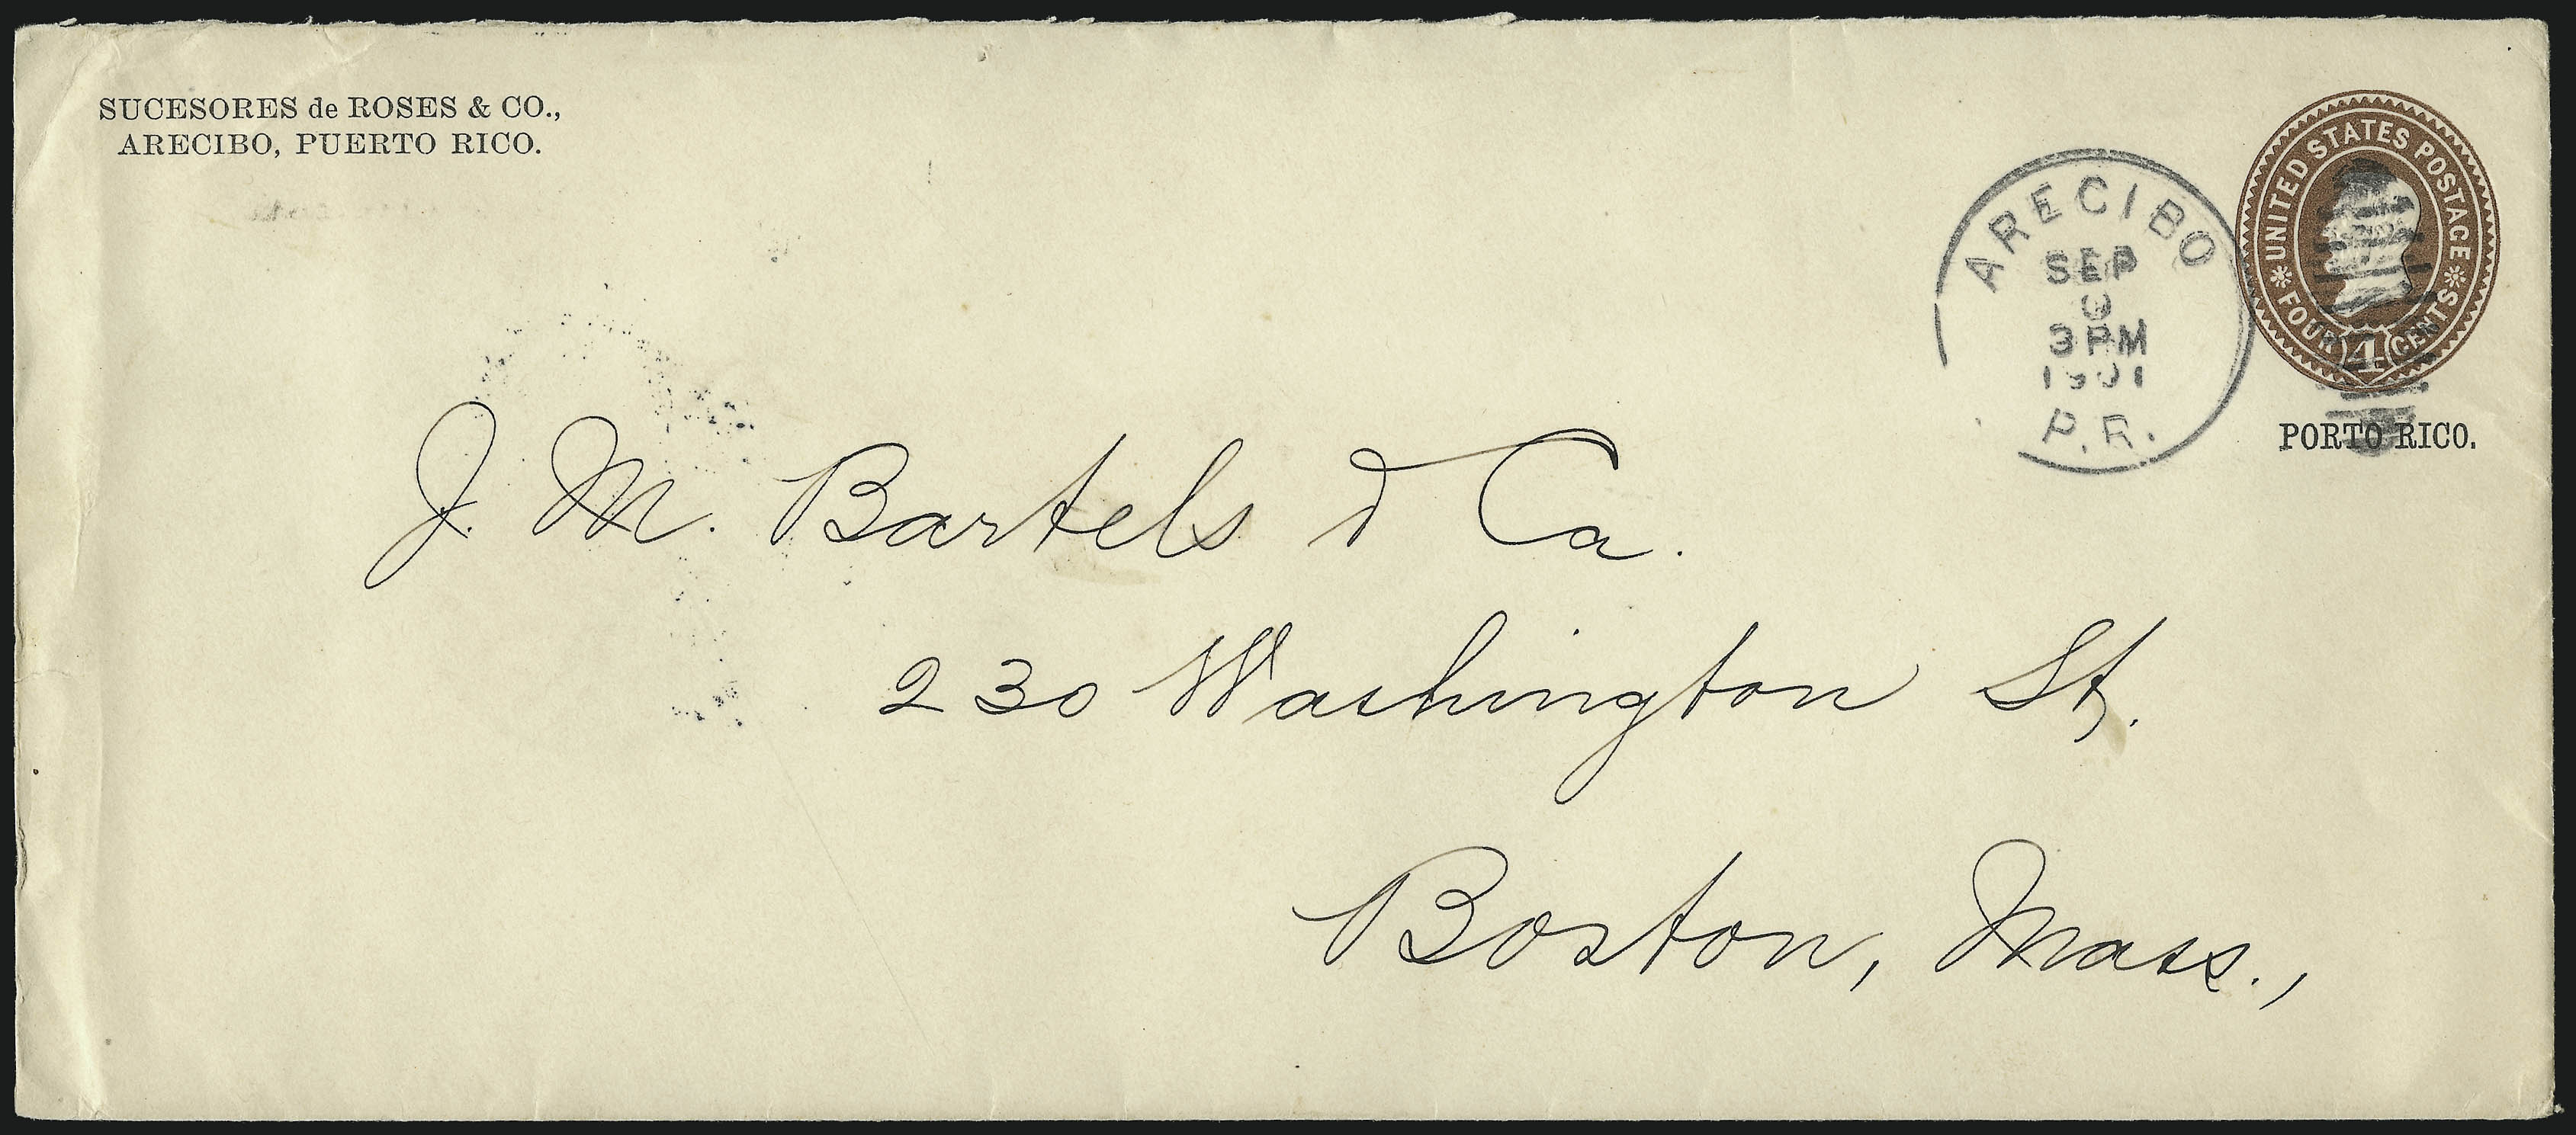 SUCESORES de ROSES & CO.,
ARECIBO, PUERTO RICO.
UNITED STATES POSTAGE
FOUR 4 CENTS
PORTO RICO.
ARECIBO
SEP
3 PM
1901
P.R.
J. M. Bartels & Co.
230 Washington St.
Boston, Mass.,